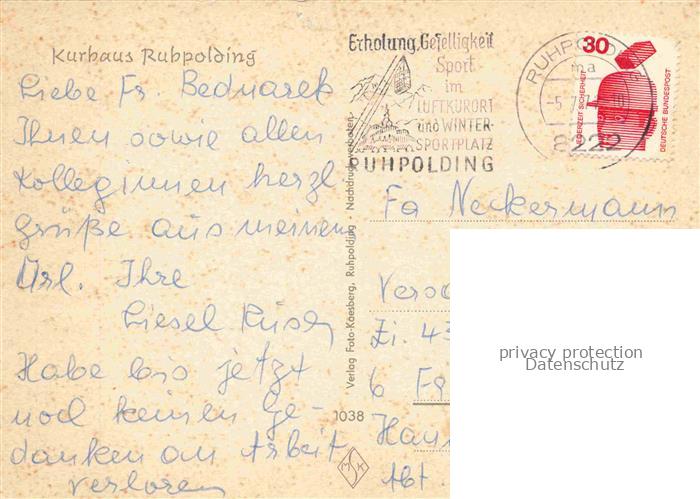 Kurhaus Ruhpolding
Liebe Fr. Bednarek
Ihnen sowie allen
Kolleginnen herzl
Grüße aus meinem
Url. Ihre
Liesel
Habe bis jetzt
noch keinen Ge-
danken an Arbeit
verloren
Erholung, Geselligkeit
Sport
im
LUFTKURORT
und WINTER-
SPORTPLATZ
RUHPOLDING
RUHPOLDING
ma
-5.7.7
8222
30
JEDERZEIT SICHERHEIT
DEUTSCHE BUNDESPOST
Verlag Foto-Kaesberg, Ruhpolding Nachdruck verboten
1038
MSK
Fa Neckermann
Zi. 43
6
Abt.
privacy protection
Datenschutz